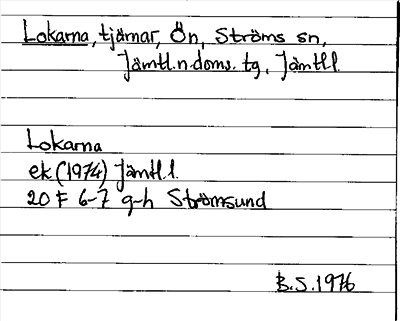 Lokarna, tjärnar, Ön, Ströms sn,
Jämtl.n.doms. tg, Jämtl l.
Lokarna
ek (1974) Jämtl l.
20 F 6-7 g-h Strömsund
B.S. 1976